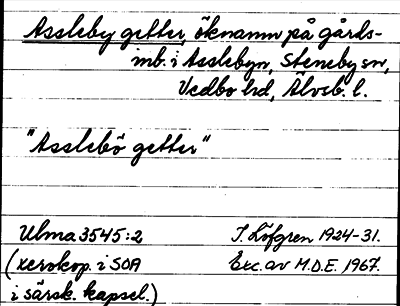 Assleby getter, öknamn på gårds-
inb. i Asslebyn, Steneby sn,
Vedbo hd, Älvsb. l.
"Asslebö getter"
Ulma 3545:2 T. Löfgren 1924-31.
(xerokop. i SOA Exc. av M.D.E. 1967.
i särsk. kapsel.)